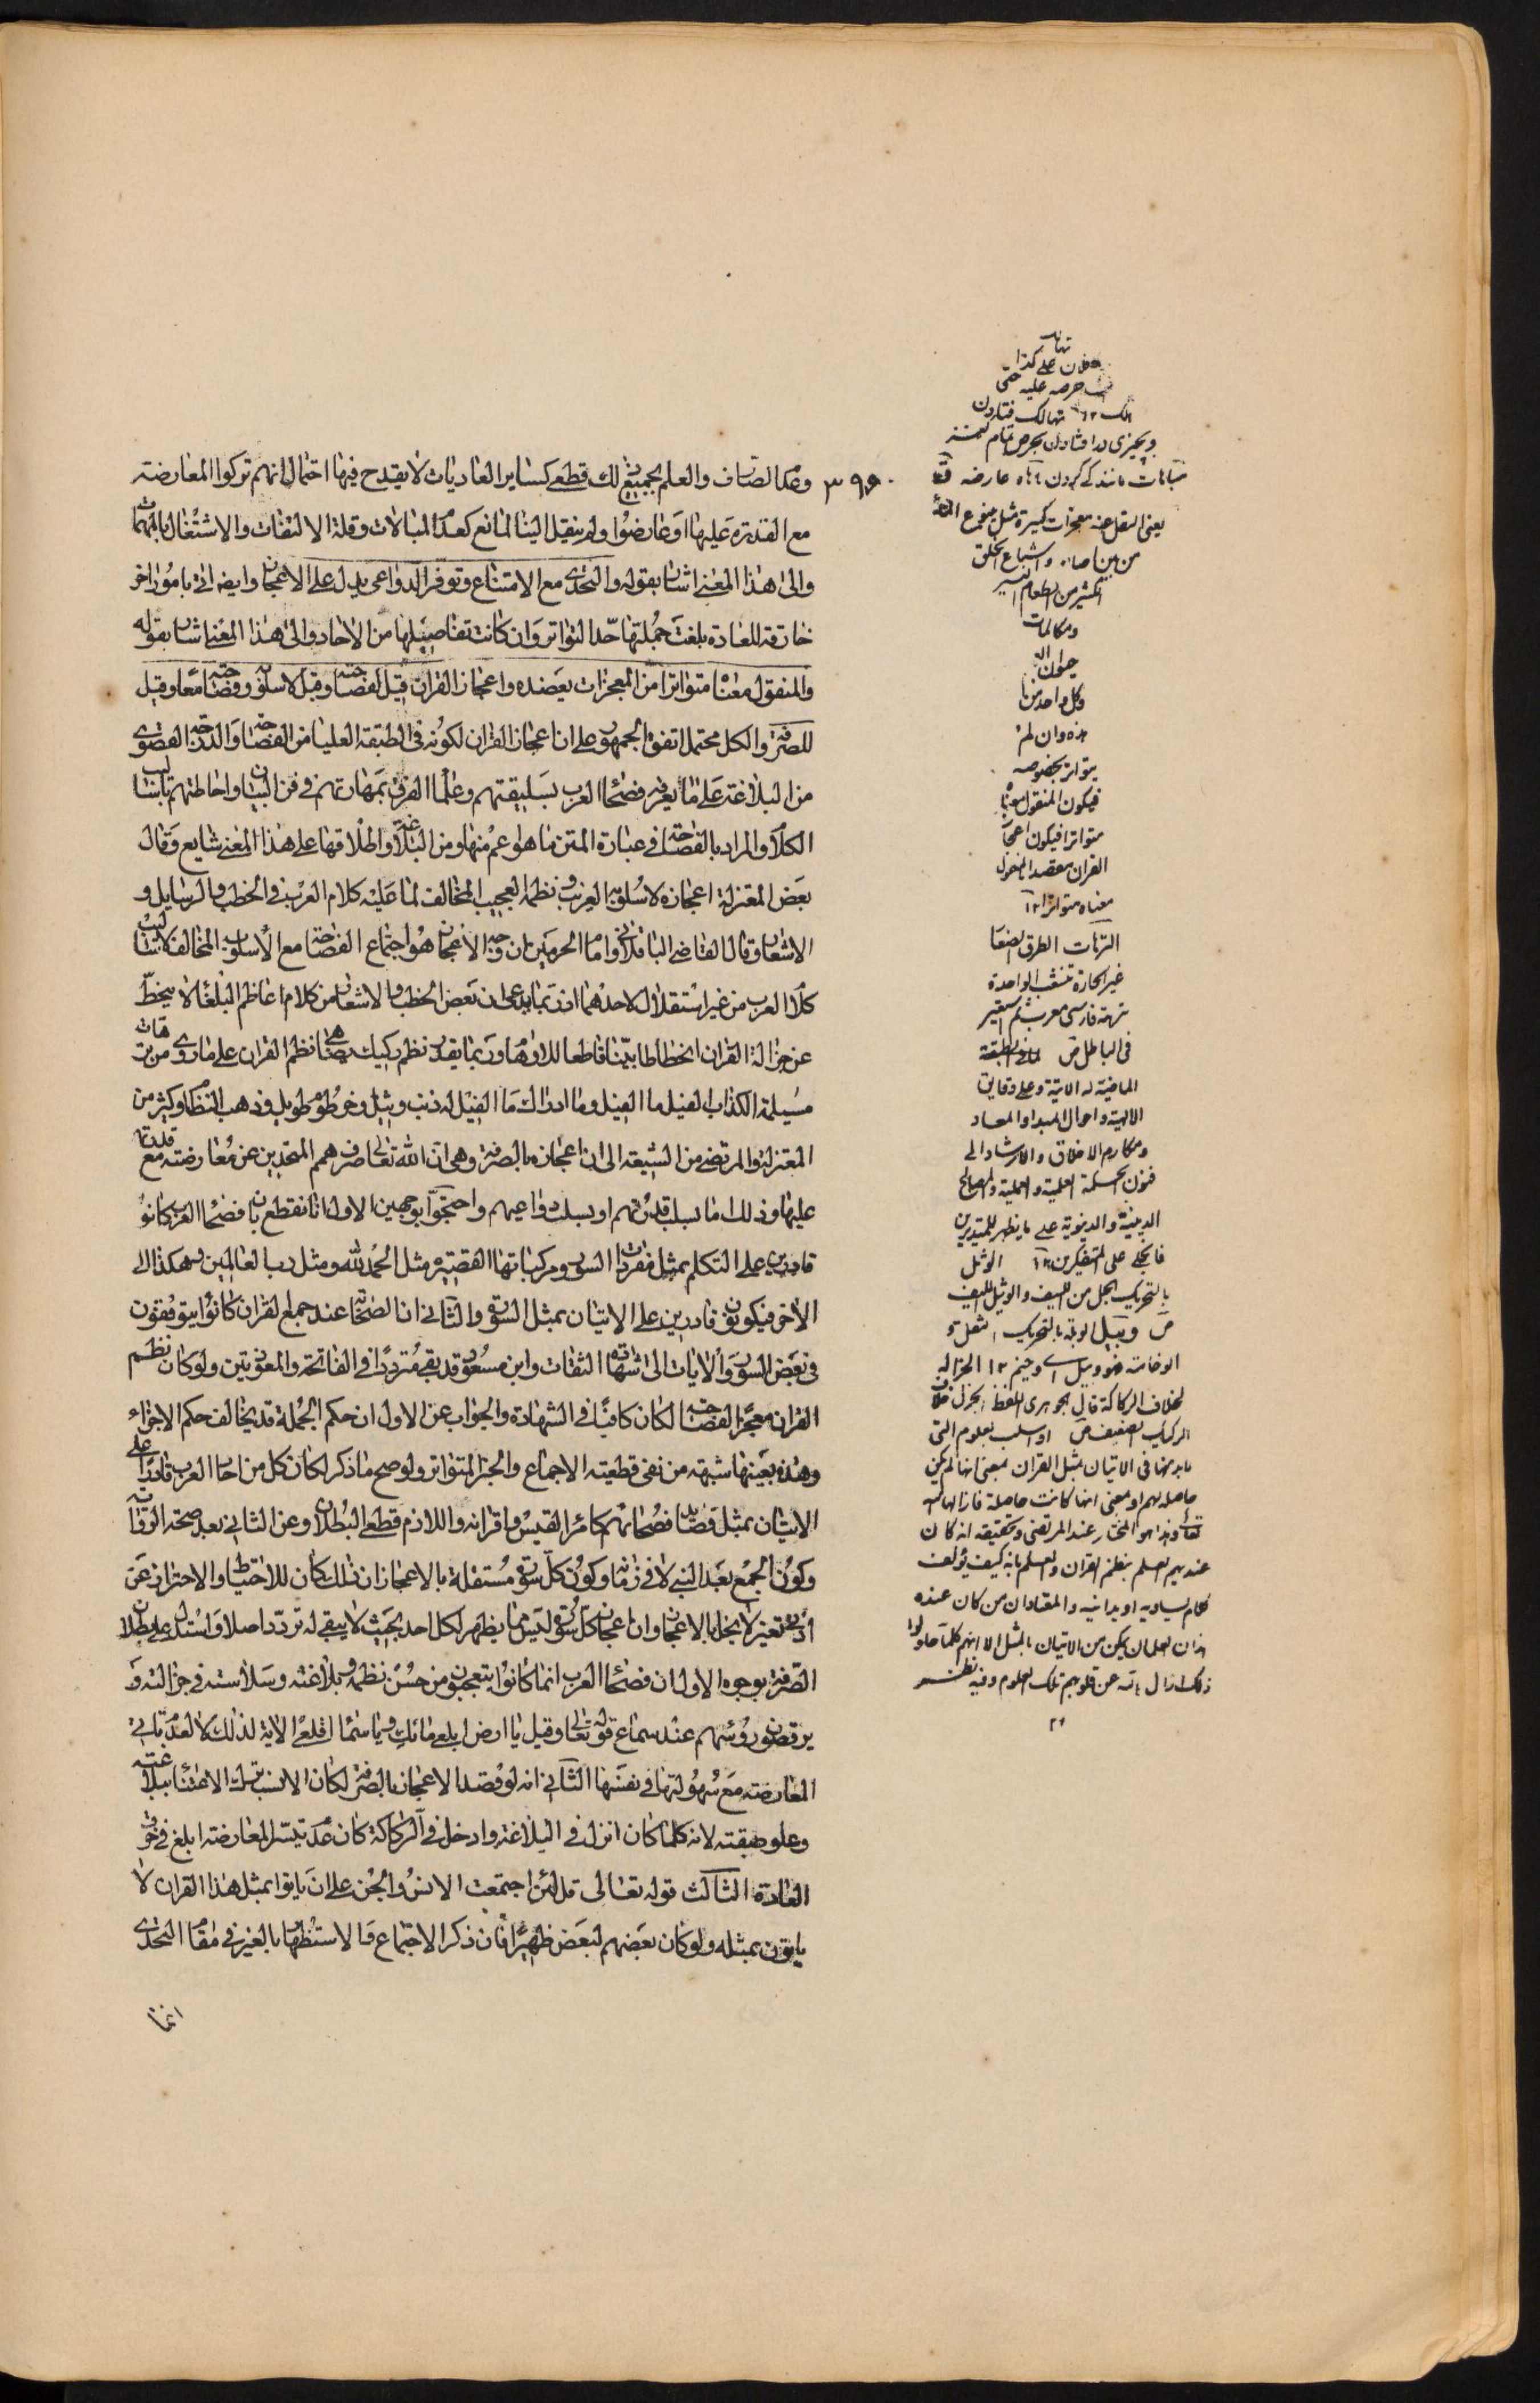 وعدم الصارف والعلم بجميع ذلك قطعي كساير العاديات لا يقدح فيها احتمال انهم تركوا المعارضة
مع القدرة عليها او عارضوا ولم ينقل الينا لمانع كعدم المبالات وقلة الالتفات والاشتغال بالمهمات
والى هذا المعنى اشار بقوله والتحدى مع الامتناع وتوفر الدواعى يدل على الاعجاز وايضه اتى بامور اخر
خارقة للعادة بلغت جملتها حد التواتر وان كانت تفاصيلها من الاحاد والى هذا المعنى اشار بقوله
والمنقول معناه متواترا من المعجزات يعضده واعجاز القران قيل لفصاحته وقيل لاسلوبه وفصاحته معا وقيل
للصرفة والكل محتمل اتفق الجمهور على ان اعجاز القران لكونه فى الطبقة العليا من الفصاحة والدرجة القصوى
من البلاغة على ما يعرفه فصحاء العرب بسليقتهم وعلماء الفرق بمهارتهم في فن البيان واحاطتهم باساليب
الكلام والمراد بالفصاحة في عبارة المتن ما هو اعم منها ومن البلاغة واطلاقها على هذا المعنى شايع وقال
بعض المعتزلة اعجازه لاسلوبه الغريب ونظمه العجيب المخالف لما عليه كلام العرب في الخطب والرسايل و
الاشعار وقال القاضى الباقلانى وامام الحرمين ان وجه الاعجاز هو اجتماع الفصاحة مع الاسلوب المخالف لاساليب
كلام العرب من غير استقلال لاحدهما اذ ربما يدعى ان بعض الخطب والاشعار من كلام اعاظم البلغاء لا ينحط
عن جزالة القران انحطاطا بينا قاطعا للاوهام وربما يقدر نظم ركيك يضاهى نظم القران على ما روى من ترهات
مسيلمة الكذاب الفيل ما الفيل وما ادراك ما الفيل له ذنب وبيل وخرطوم طويل وذهب النظام وكثير من
المعتزلة والمرتضى من الشيعة الى ان اعجازه بالصرفة وهي ان الله تعالى صرف همم المتحدين عن معارضته مع قدرتهم
عليها وذلك اما بسلب قدرتهم او بسلب دواعيهم واحتجوا بوجهين الاول انا نقطع بان فصحاء العرب كانوا
قادرين على التكلم بمثل مفردات السور ومركباتها القصيرة مثل الحمد لله ومثل رب العالمين وهكذا الى
الاخر فيكونون قادرين على الاتيان بمثل السورة والثانى ان الصحابة عند جمع القران كانوا يتوقفون
فى بعض السور والايات الى شهادة الثقات وابن مسعود قد بقى مترددا في الفاتحة والمعوذتين ولو كان نظم
القران معجزا لفصاحته لكان كافيا في الشهادة والجواب عن الاول ان حكم الجملة قد يخالف حكم الاجزاء
وهذه بعينها شبهة من نفى قطعية الاجماع والخبر المتواتر ولو صح ما ذكر لكان كل من احاد العرب قادرا على
الاتيان بمثل قصايد فصحائهم كامرء القيس واقرانه واللازم قطعي البطلان وعن الثانى بعد صحة الرواية
وكون الجمع بعد النبي لا في زمانه وكون كل سورة مستقلة بالاعجاز ان ذلك كان للاحتياط والاحتراز عن
ادنى تغير لا يخل بالاعجاز وان اعجاز كل سورة ليس مما يظهر لكل احد بحيث لا يبقى له تردد اصلا واستدل على بطلان
الصرفة بوجوه الاول ان فصحاء العرب انما كانوا يتعجبون من حسن نظمه وبلاغته وسلاسته في جزالته و
يرقصون روسهم عند سماع قوله تعالى وقيل يا ارض ابلعى مائك ويا سماء اقلعى الاية لذلك لا لعدم تاتى
المعارضة مع سهولتها فى نفسها الثانى انه لو قصد الاعجاز بالصرفة لكان الانسب ترك الاعتناء ببلاغته
وعلو طبقته لانه كلما كان انزل في البلاغة وادخل في الركاكة كان عدم تيسر المعارضة ابلغ في خرق
العادة الثالث قوله تعالى قل لئن اجتمعت الانس والجن على ان ياتوا بمثل هذا القران لا
ياتون بمثله ولو كان بعضهم لبعض ظهيرا فان ذكر الاجتماع والاستظهار بالغير في مقام التحدى
انما
فلان على كذا
حرصه عليه حتى
تهالك فتادن
يعنى النقل عنه معجزات كثيرة مثل
من بين اصابعه واشباع الخلق
الكثير من الطعام اليسير
ومكالمات
حيوان
وكل واحد من
هذه وان لم
يتواتر بخصوصه
فيكون المنقول معناه
متواترا فيكون
القران
معناه متواترا ١٢
الترهات الطرق الصغار
غير الجادة تنشعب الواحدة
ترهة فارسى معرب ثم استعير
فى الباطل
الماضية
الالهية واحوال المبدا والمعاد
ومكارم الاخلاق والارشاد الى
فنون الحكمة العلمية والعملية والمصالح
الدينية والدنيوية على ما يظهر للمتدبرين
على المتفكرين ١٢ الوثيل
بالتحريك الحبل من الليف والوثيل الليف
وبيل الوبلة بالتحريك الثقل و
الوخامة
بخلاف الركاكة قال الجوهرى اللفظ الجزل خلاف
الركيك او بسلب العلوم التى
لا بد منها في الاتيان بمثل القران بمعنى انها لم تكن
حاصلة لهم او بمعنى انها كانت حاصلة فازالها الله
تعالى وهذا هو المختار عند المرتضى وتحقيقه انه كان
عندهم العلم بنظم القران والعلم بانه كيف يؤلف
كلام يساويه او يدانيه والمعتاد ان من كان عنده
هذان العلمان يتمكن من الاتيان بالمثل الا انهم كلما حاولوا
ذلك ازال الله عن قلوبهم تلك العلوم وفيه نظر